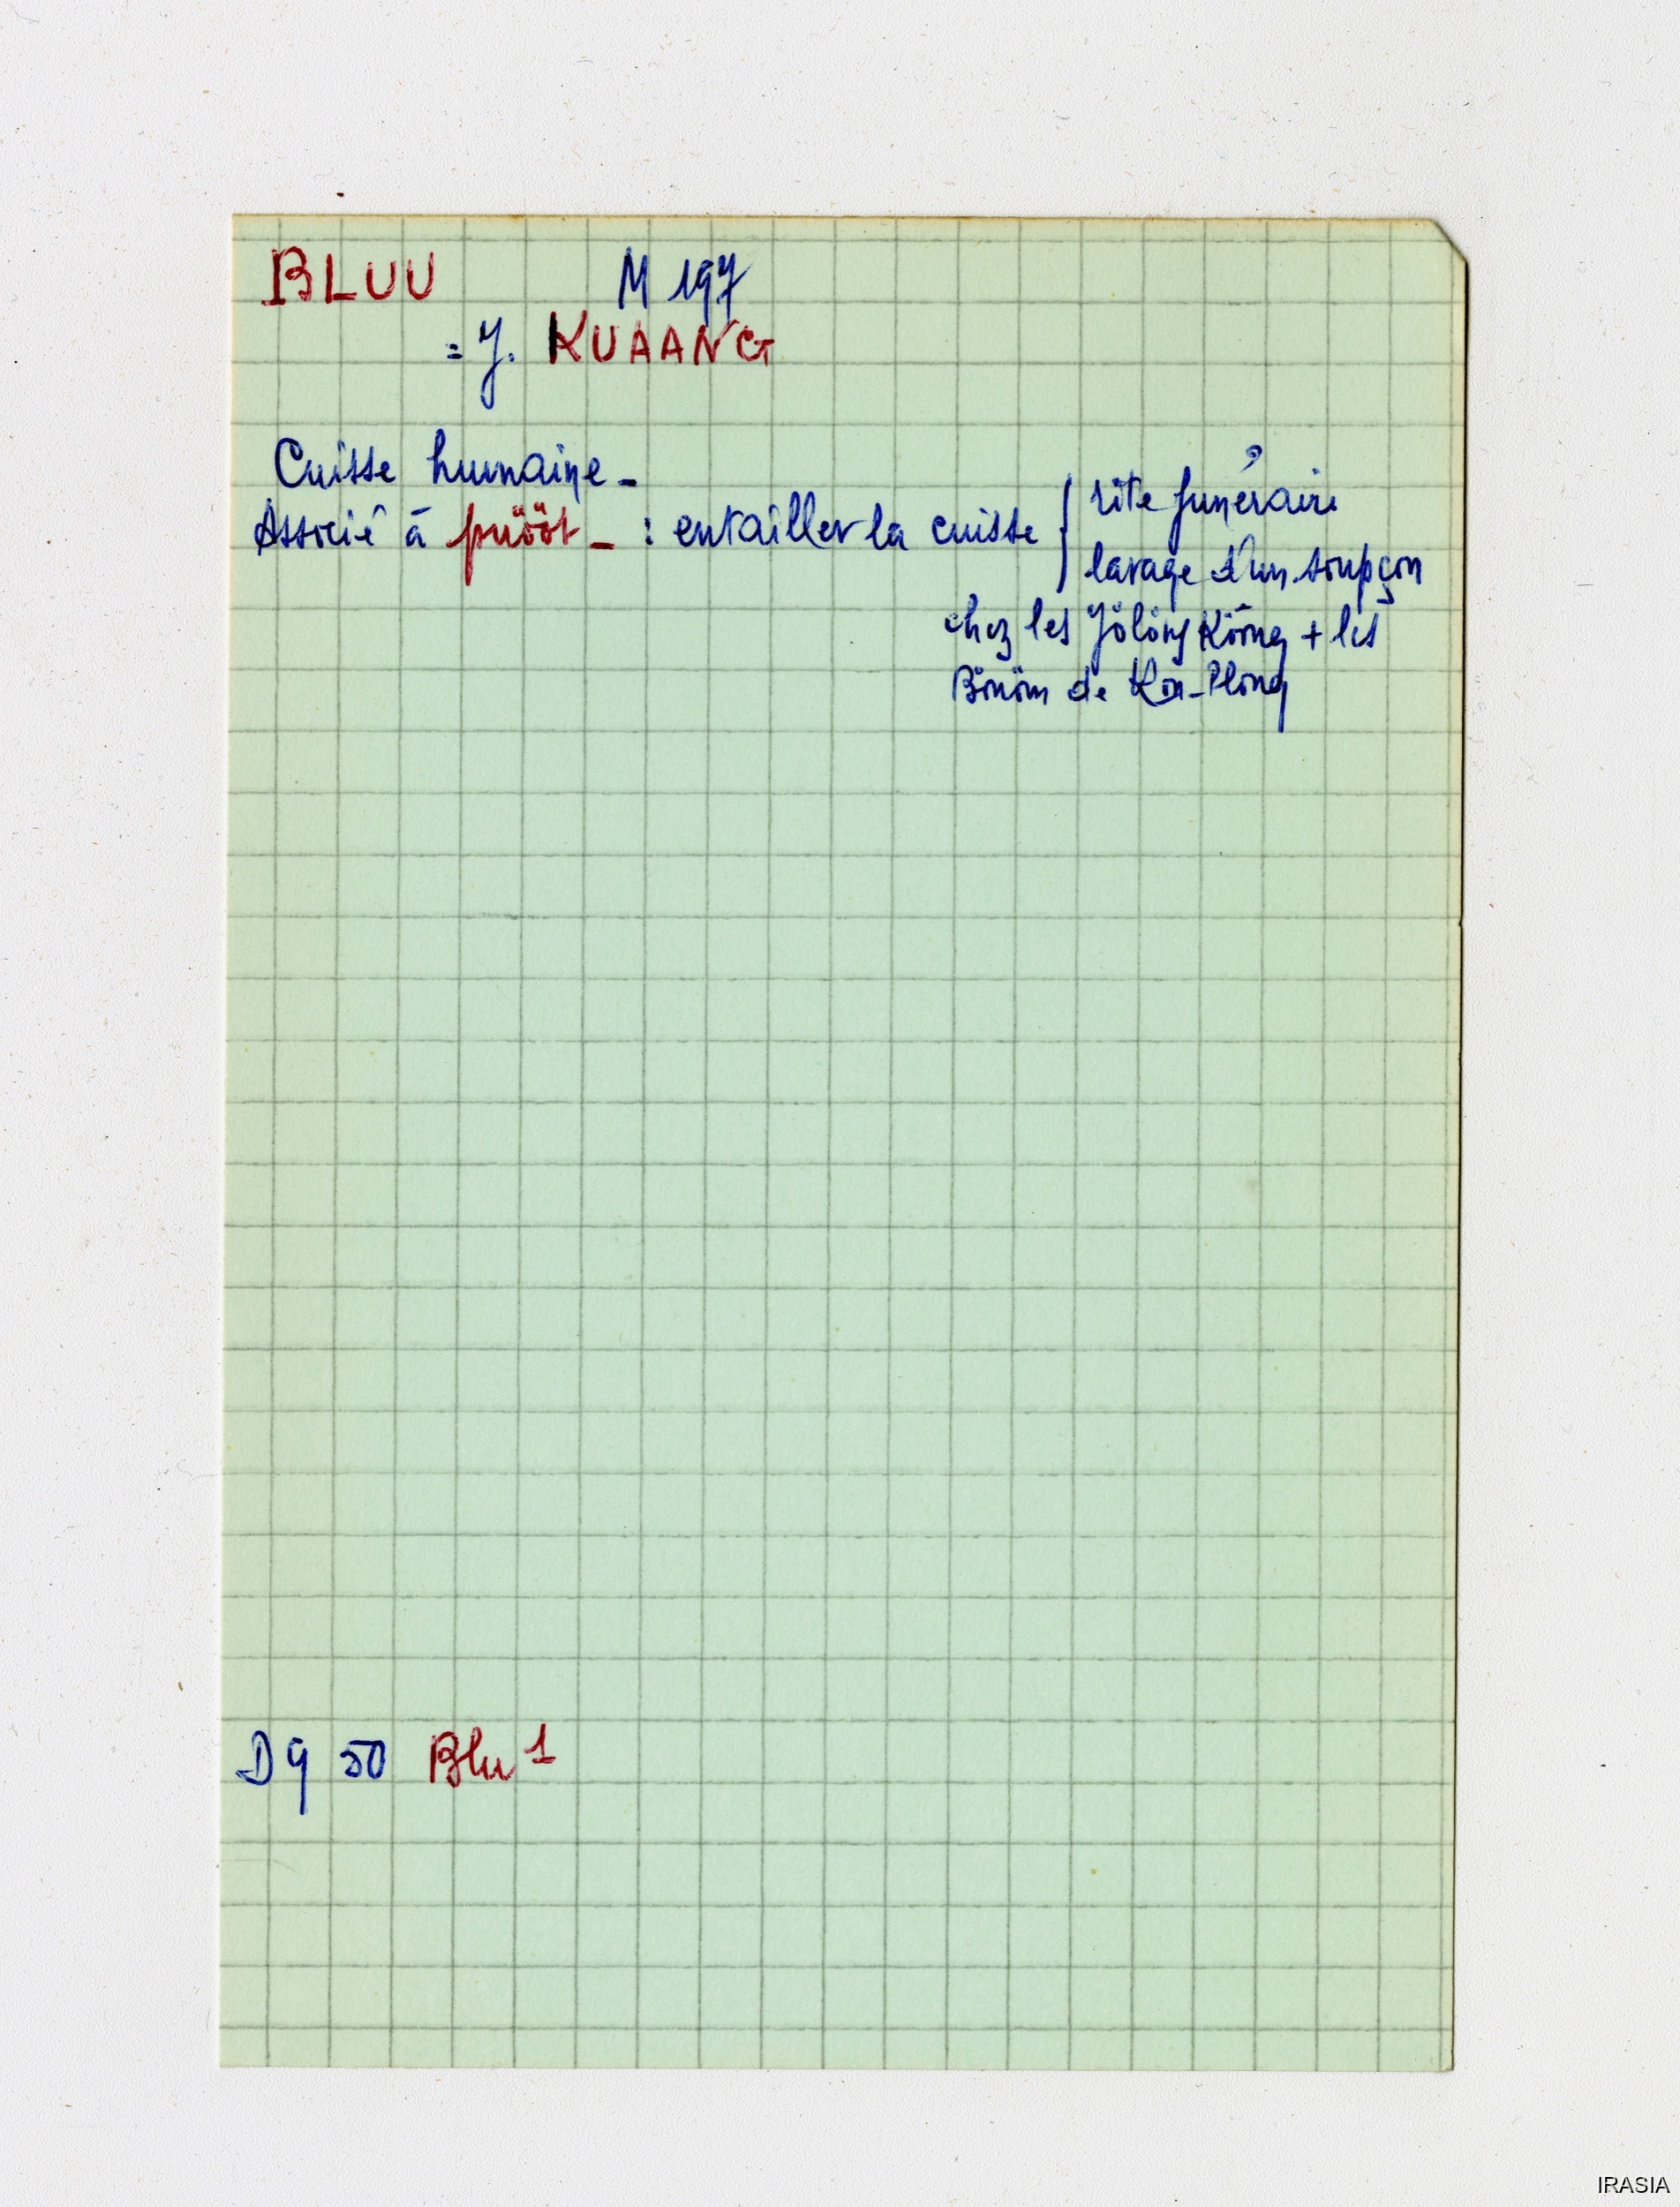 BLUU M 197
= J. KUAANG
Cuisse humaine -
Associé à pööt - : entailler la cuisse { rite funéraire
lavage d'un soupçon
chez les Jölöng Köong + les
Bönöm de Kon-Plong
D9 50 Blu 1
IRASIA